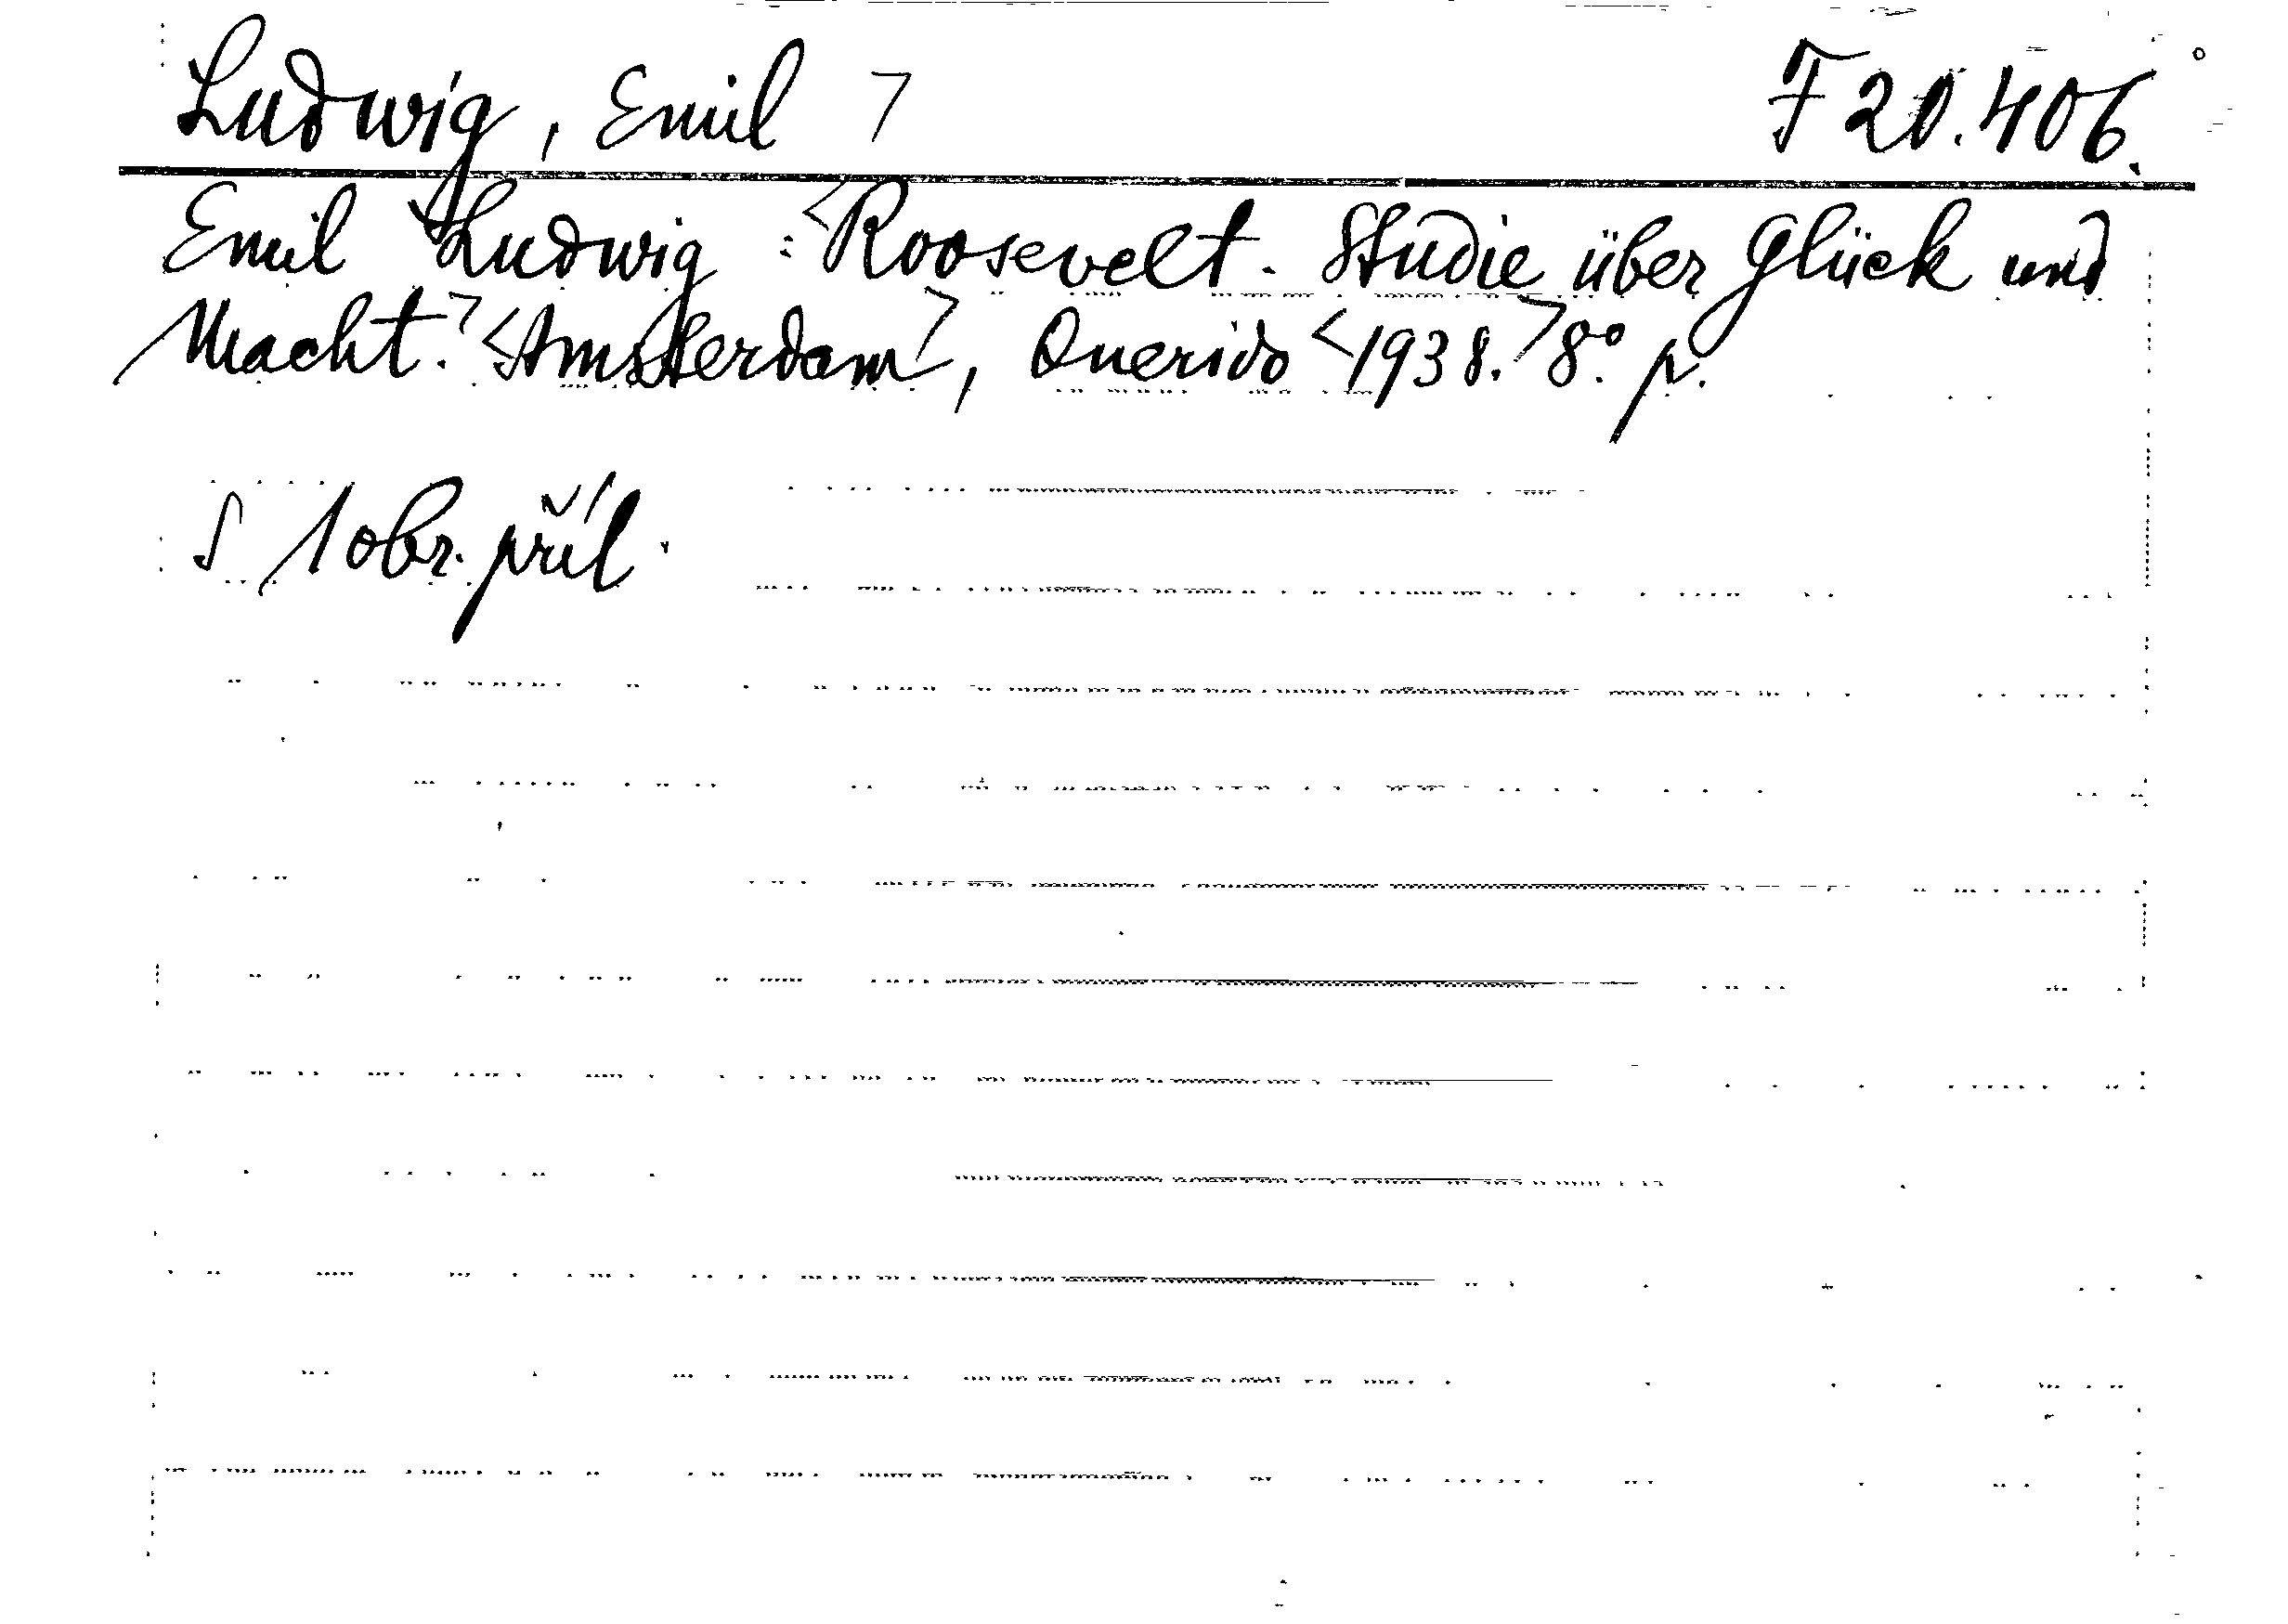 Ludwig, Emil > F 20.406.
Emil Ludwig : <Roosevelt. Studie über Glück und
Macht.> <Amsterdam>, Querido <1938.> 8°. p.
S 1 obr. příl.